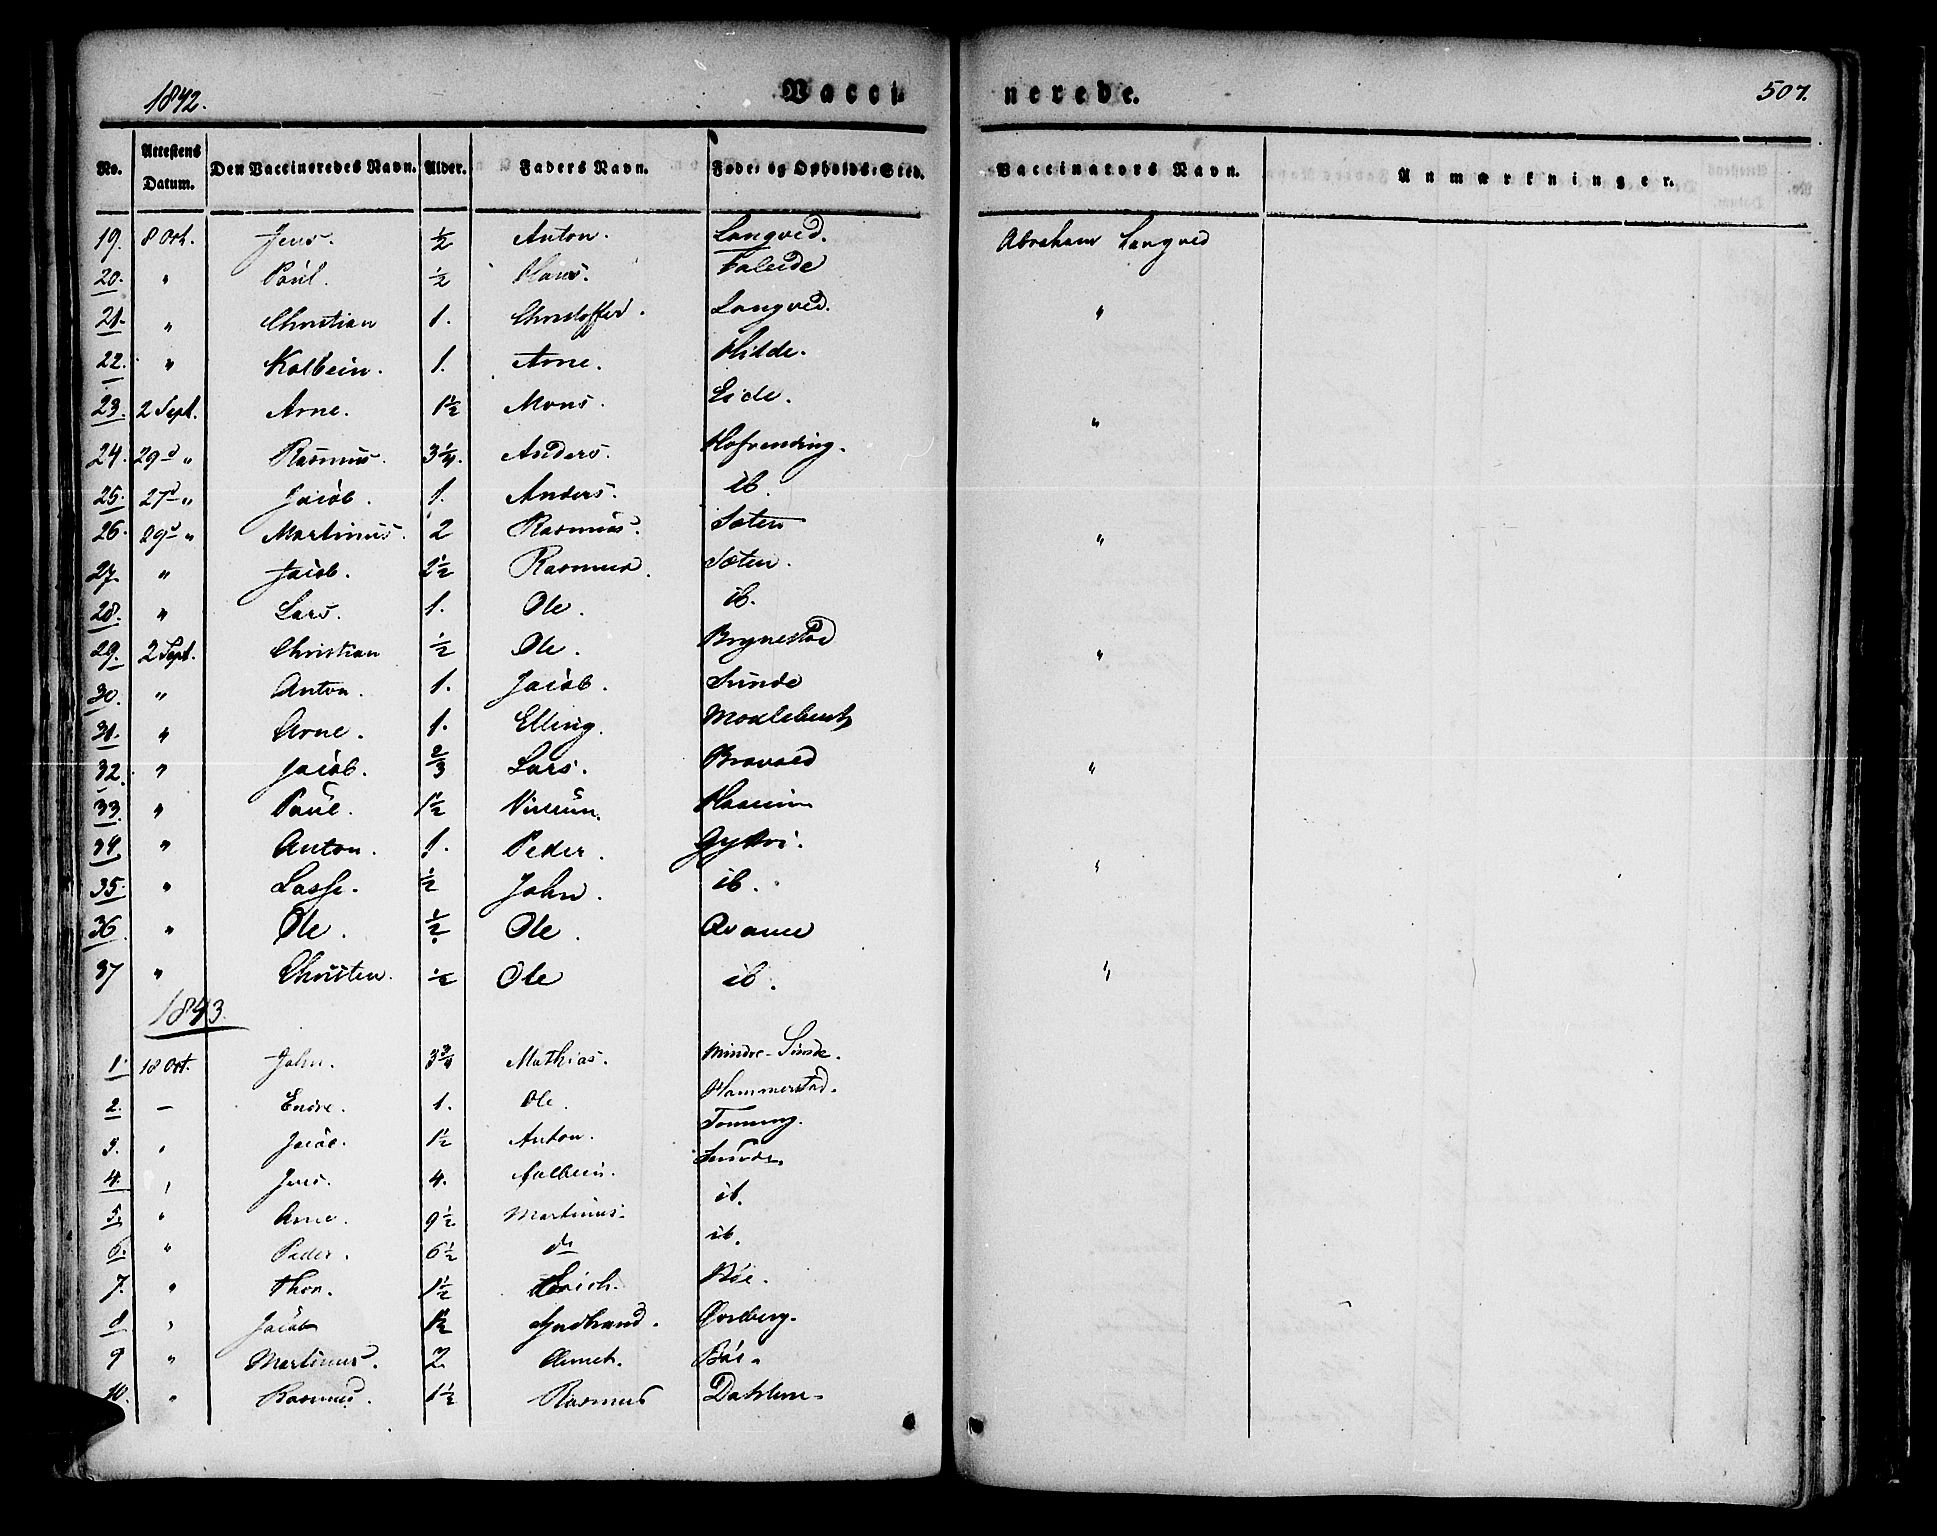 1842. Vacci- nerede. 507.
No. Attestens Datum. Den Vaccineredes Navn. Alder. Faders Navn. Føde- og Opholds-Sted. Vaccinators Navn. Anmærkninger.
19. 8 Oct. Jens. ½ Anton. Langved. Abraham Langved
20. " Paul. ½ Hans. Faleide
21. " Christian 1. Christoffer. Langved. "
22. " Kolbein. 1. Arne. Hilde.
23. 2 Sept. Arne. 1½ Mons. Eide. "
24. 29d " Rasmus. 3¼. Anders. Hofrending.
25. 27d " Jacob. 1. Anders. ib.
26. 29d " Martinus. 2 Rasmus. Sæten "
27. " Jacob. 2½ Rasmus. Sæten.
28. " Lars. 1. Ole. ib.
29. 2 Sept. Christian ½ Ole. Brynestad "
30. " Anton. 1. Jacob. Sunde
31. " Arne. 1. Elling.
32. " Jacob. 2/3 Lars. "
33. " Paul. 1½
34. " Anton. 1. Peder. Gytri. "
35. " Lasse. ½ John. ib.
36 " Ole. ½. Ole. Qvame
37 " Christen. ½ Ole ib. "
1843.
1. 18 Oct. John. 3¾ Mathias. Mindre-Sunde.
2. — Endre. 1. Ole. Hammerstad.
3. " Jacob. 1½ Anton. Tonning.
4. " Jens. 4. Sunde.
5. " Arne. 9½ Martinus. ib.
6. " Peder. 6½ do ib.
7. " Thon. 1½ Erich. Bøe.
8 " Jacob 1½ Gudbrand.
9 " Martinus. 2. Bøe.
10. " Rasmus. 1½ Rasmus